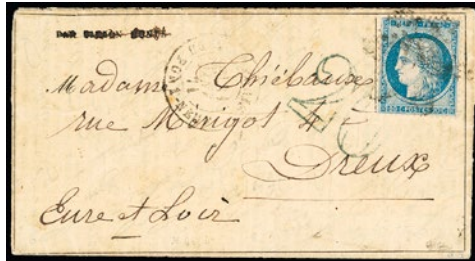 PAR BALLON MONTÉ
Madame Thiébaux
rue Mérigot 4
Dreux
Eure et Loir
20 C POSTES 20 C